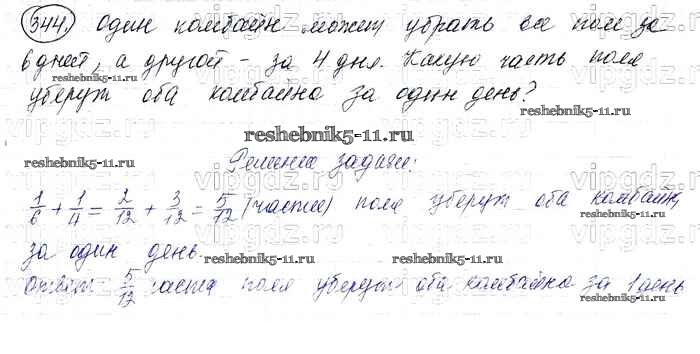 344. Один комбайн может убрать все поле за
6 дней, а другой - за 4 дня. Какую часть поля
уберут оба комбайна за один день?
reshebnik5-11.ru
reshebnik5-11.ru reshebnik5-11.ru
Решение задачи:
1/6 + 1/4 = 2/12 + 3/12 = 5/12 (части) поля уберут оба комбайна
за один день.
reshebnik5-11.ru reshebnik5-11.ru
Ответ: 5/12 части поля уберут оба комбайна за 1 день
vipgdz.ru